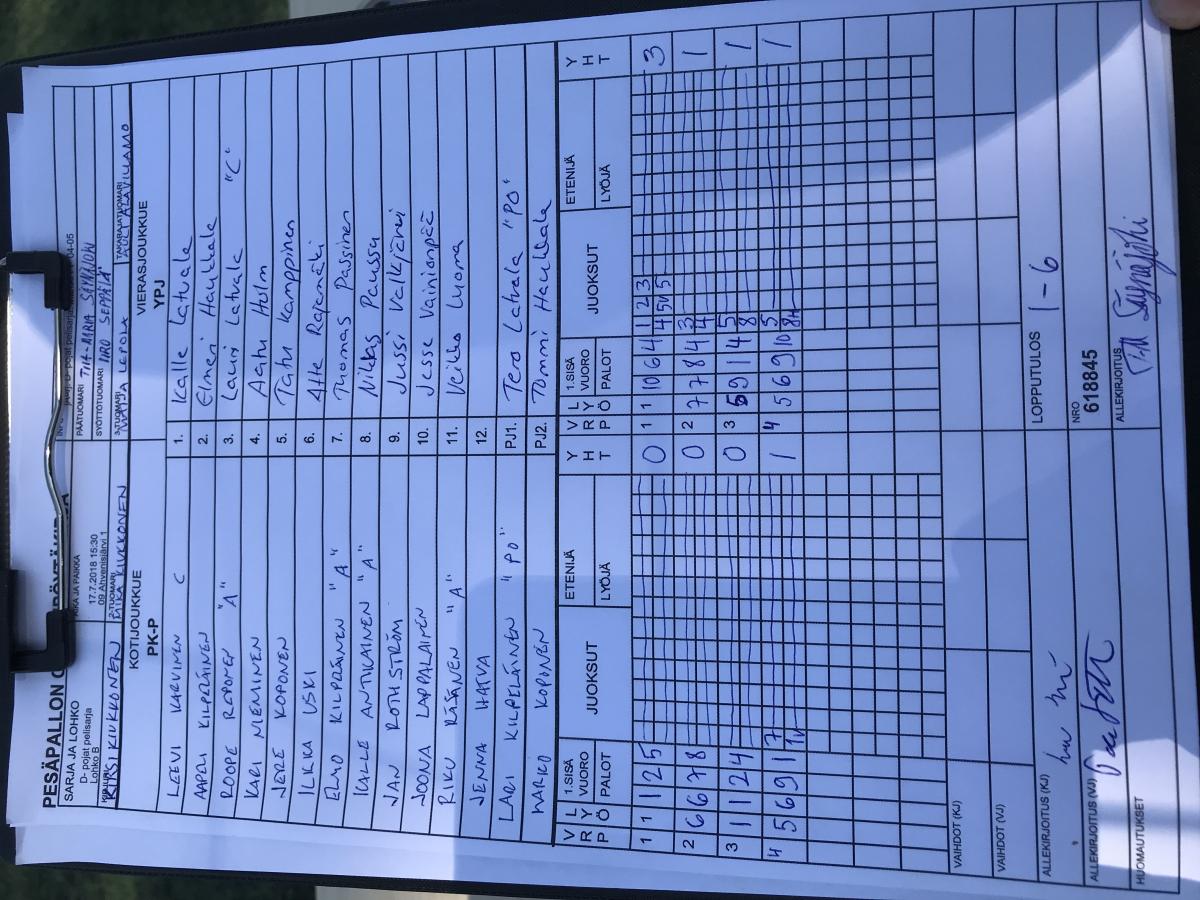 PESÄPALLON
SARJA JA LOHKO
D- pojat pelisarja
Lohko B
KIRSI KIUKKONEN
AIKA JA PAIKKA
17.7.2018 15:30
09 Ahvenisjärvi 1
2-TUOMARI
MIKA KIUKKONEN
PÄÄTUOMARI
SYÖTTÖTUOMARI
3-TUOMARI
TAKARAJATUOMARI
KOTIJOUKKUE
PK-P
VIERASJOUKKUE
YPJ
LEEVI KARVINEN C 1. Kalle Latvala
AAPELI KILPELÄINEN 2. Elmeri Haukkala
ROOPE ROPONEN "A" 3. Lauri Latvala "C"
KARI NIEMINEN 4. Aatu Holm
JERE KOPONEN 5. Tatu Kamppinen
ILKKA USKI 6. Atte Rapamäki
EINO KILPELÄINEN "A" 7. Thomas Passinen
KALLE ANTIKAINEN "A" 8. Niklas Paussu
JAN ROTHSTRÖM 9. Jussi Valkjärvi
JOONA LAPPALAINEN 10. Jesse Vainionpää
RIKU RÄSÄNEN "A" 11. Veikko Luoma
JENNA HATVA 12.
LARI KILPELÄINEN "PO" PJ1. Tero Latvala "PO"
MARKO KOPONEN PJ2. Tommi Haukkala
V R P L Y Ö 1.SISÄ VUORO PALOT JUOKSUT ETENIJÄ LYÖJÄ Y H T V R P L Y Ö 1.SISÄ VUORO PALOT JUOKSUT ETENIJÄ LYÖJÄ Y H T
1 1 1 2 5 0 1 1 10 6 4 1 2 3 3
4 5v 5
2 6 6 7 8 0 2 7 7 8 4 3 1
4
3 1 1 2 4 0 3 5 9 1 4 5 1
8
4 5 6 9 1 7 1 4 5 6 9 10 5 1
1v 8H
VAIHDOT (KJ)
VAIHDOT (VJ)
ALLEKIRJOITUS (KJ)
LOPPUTULOS 1-6
ALLEKIRJOITUS (VJ)
NRO
618845
HUOMAUTUKSET
ALLEKIRJOITUS